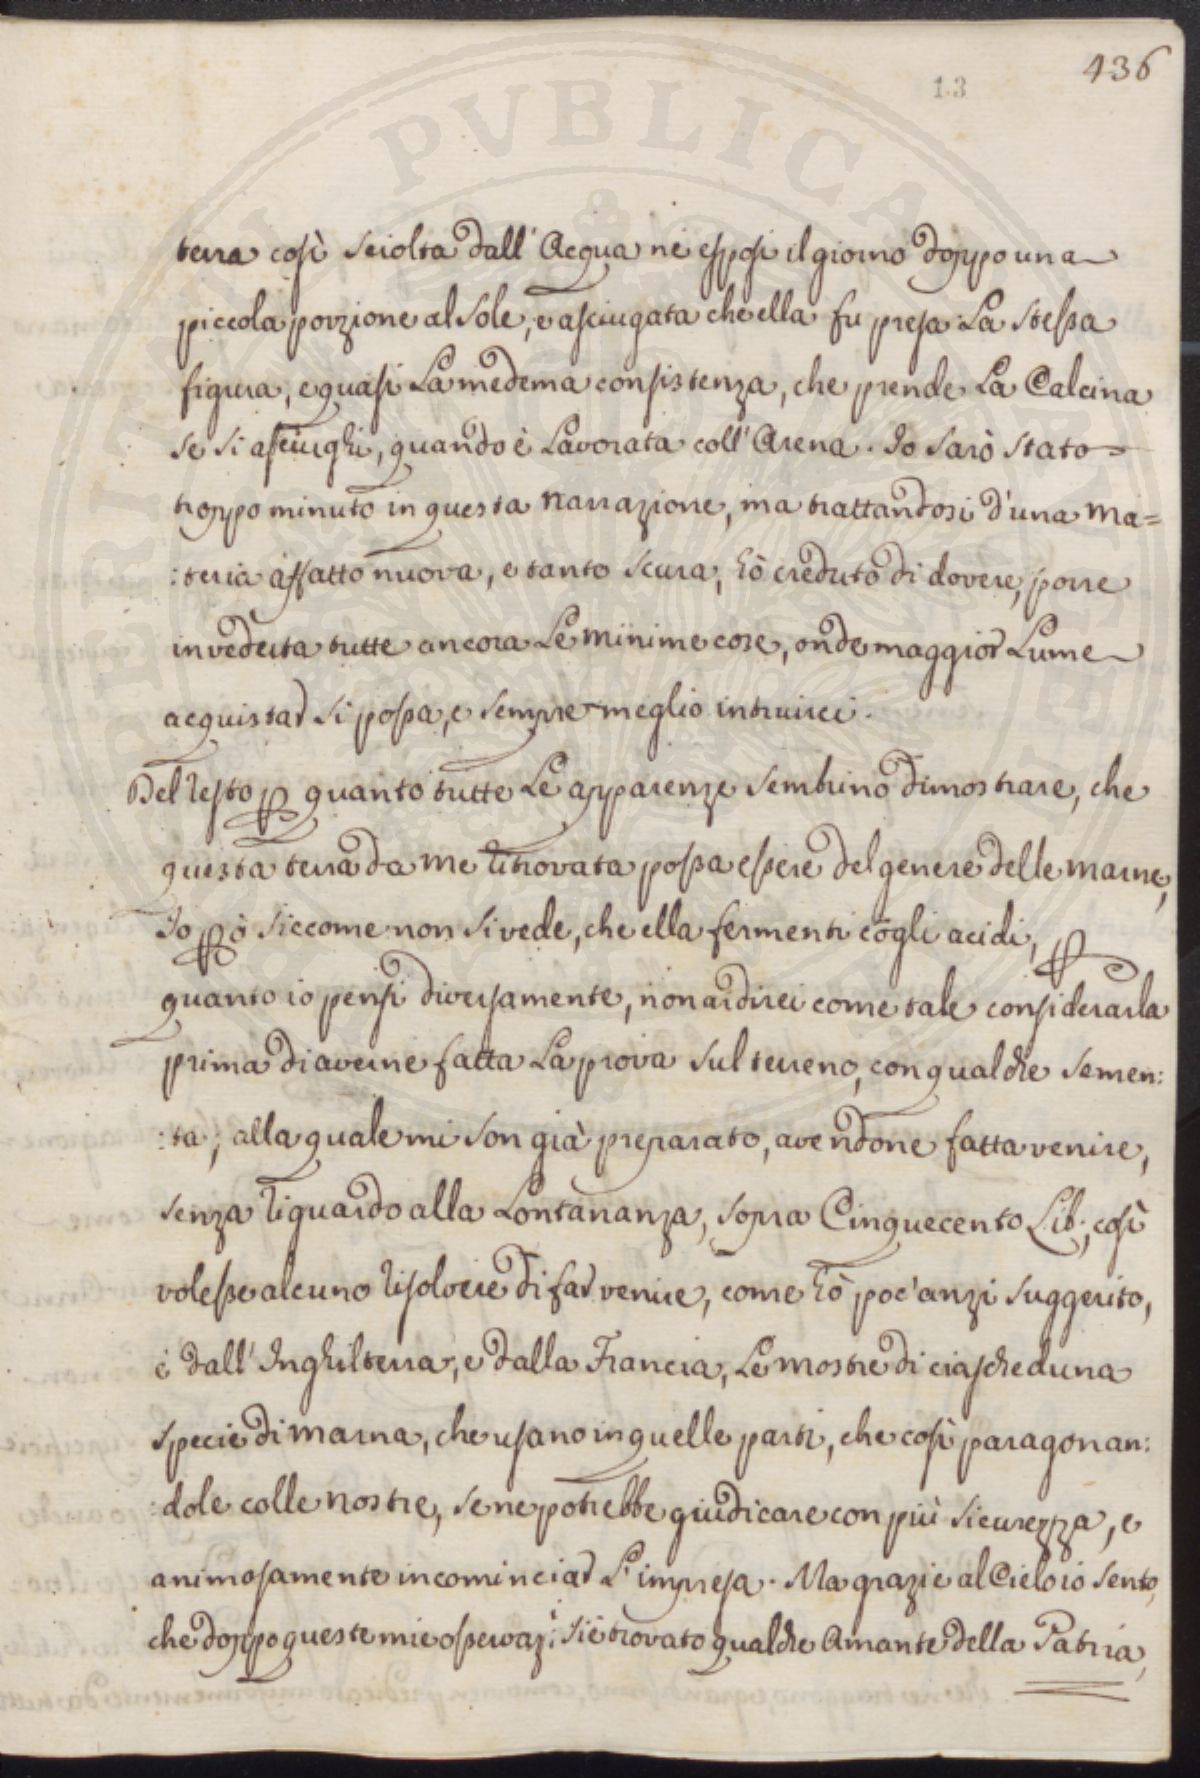 436
13
terra così sciolta dall'Acqua ne esposi il giorno doppo una
piccola porzione al Sole, e asciugata che ella fu presa La stessa
figura, e quasi La medema consistenza, che prende La Calcina
se si asciughi, quando è Lavorata coll'Arena. Io Sarò Stato
troppo minuto in questa narrazione, ma trattandosi d'una ma=
:teria affatto nuova, e tanto scura, hò creduto di dovere, porre
in veduta tutte ancora Le minime cose, onde maggior Lume
acquistar si possa, e sempre meglio intruirci.
Del resto p quanto tutte Le apparenze sembrino dimostrare, che
questa terra da me ritrovata possa essere del genere delle marne,
Io pò siccome non si vede, che ella fermenti cogli acidi, p
quanto io pensi diversamente, non ardirei come tale considerarla
prima di averne fatta La prova sul terreno, con qualche semen:
:ta, alla quale mi son già preparato, avendone fatta venire,
senza riguardo alla Lontananza, sopra Cinquecento Lib; così
volesse alcuno risolvere di far venire, come hò poc'anzi suggerito,
è dall'Inghilterra, e dalla Francia, Le mostre di ciascheduna
specie di marna, che usano in quelle parti, che così paragonan:
:dole colle nostre, se ne potrebbe giudicare con più sicurezza, e
animosamente incominciar L'impresa. Ma grazie al Cielo io sento,
che doppo queste mie osservazi: si è trovato qualche Amante della Patria,
PERIALIS PVBLICA